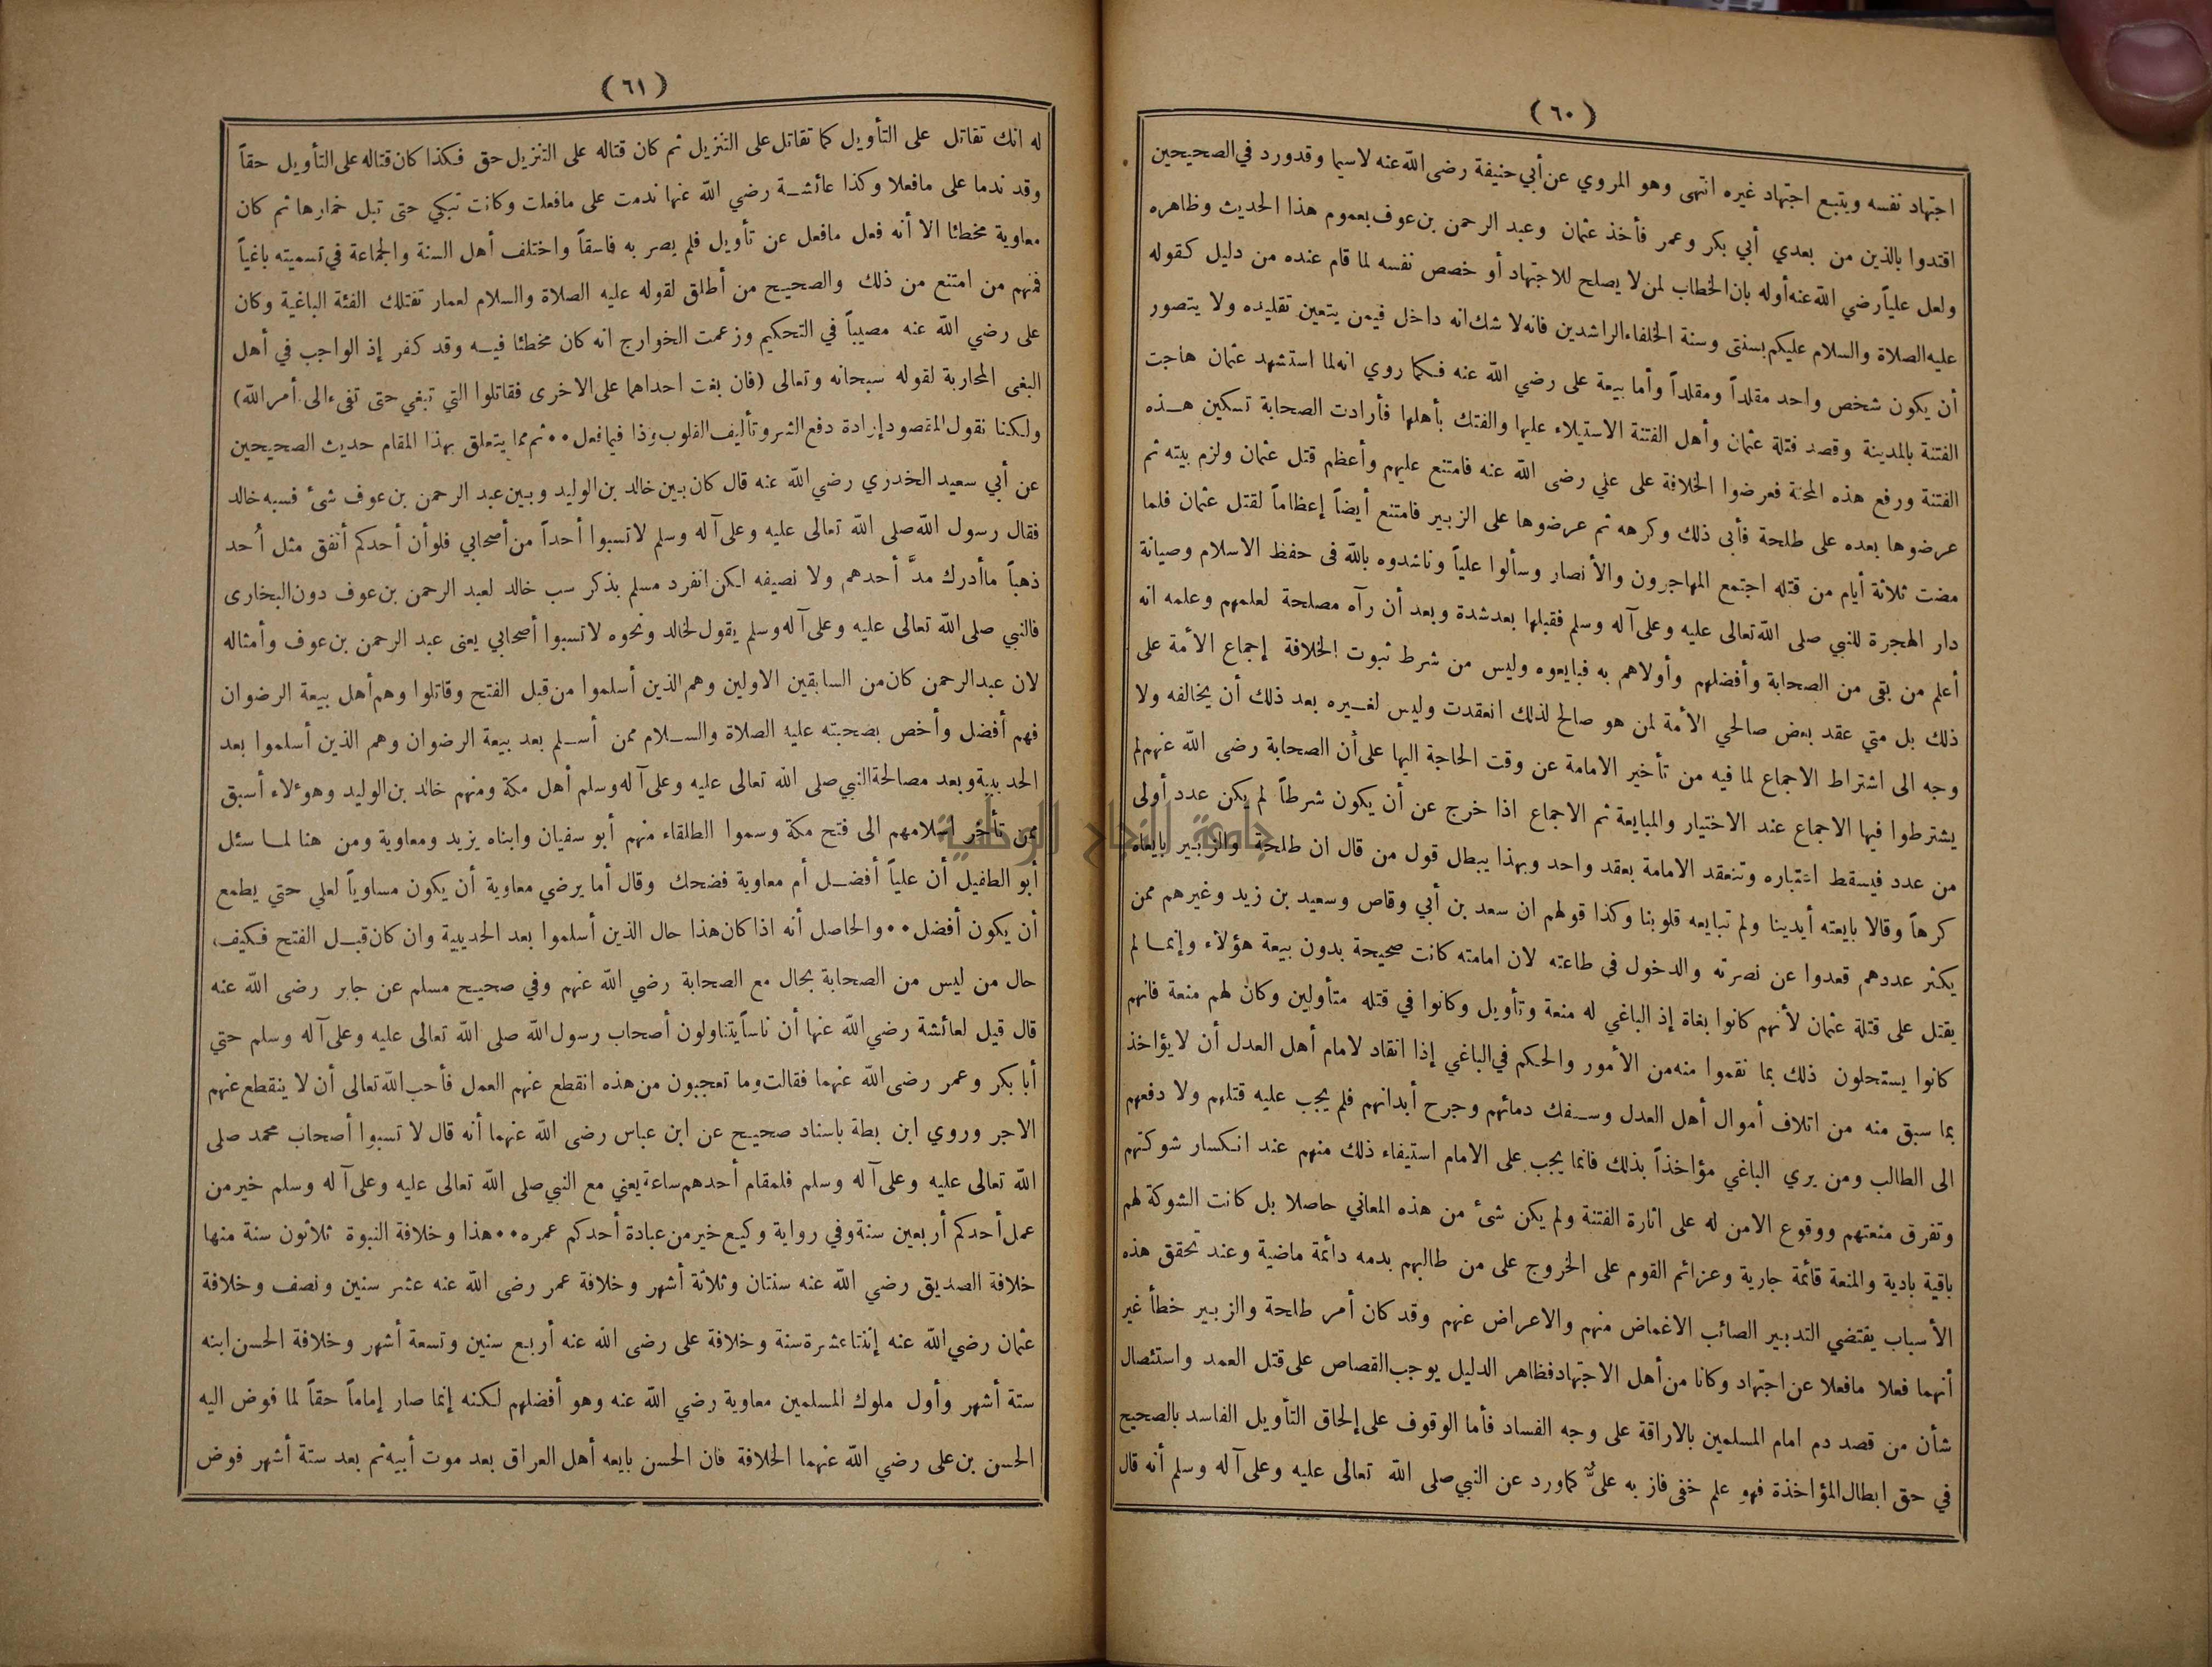 (٦٠)
اجتهاد نفسه ويتبع اجتهاد غيره انتهى وهو المروي عن أبي حنيفة رضى الله عنه لاسيما وقدورد في الصحيحين
اقتدوا بالذين من بعدي أبي بكر وعمر فأخذ عثمان وعبد الرحمن بن عوف بعموم هذا الحديث وظاهره
ولعل علياً رضي الله عنه أوله بان الخطاب لمن لا يصلح للاجتهاد أو خصص نفسه لما قام عنده من دليل كقوله
عليه الصلاة والسلام عليكم بسنتى وسنة الخلفاء الراشدين فانه لا شك انه داخل فيمن يتعين تقليده ولا يتصور
أن يكون شخص واحد مقلداً ومقلداً وأما بيعة على رضي الله عنه فكما روي انه لما استشهد عثمان هاجت
الفتنة بالمدينة وقصد قتلة عثمان وأهل الفتنة الاستيلاء عليها والفتك بأهلها فأرادت الصحابة تسكين هذه
الفتنة ورفع هذه المحنة فعرضوا الخلافة على علي رضى الله عنه فامتنع عليهم وأعظم قتل عثمان ولزم بيته ثم
عرضوها بعده على طلحة فأبى ذلك وكرهه ثم عرضوها على الزبير فامتنع أيضاً إعظاماً لقتل عثمان فلما
مضت ثلاثة أيام من قتله اجتمع المهاجرون والأنصار وسألوا علياً وناشدوه بالله فى حفظ الاسلام وصيانة
دار الهجرة للنبي صلى الله تعالى عليه وعلى آله وسلم فقبلها بعد شدة وبعد أن رآه مصلحة لعلمهم وعلمه انه
أعلم من بقى من الصحابة وأفضلهم وأولاهم به فبايعوه وليس من شرط ثبوت الخلافة إجماع الأمة على
ذلك بل متي عقد بعض صالحي الأمة لمن هو صالح لذلك انعقدت وليس لغيره بعد ذلك أن يخالفه ولا
وجه الى اشتراط الاجماع لما فيه من تأخير الامامة عن وقت الحاجة اليها على أن الصحابة رضى الله عنهم لم
يشترطوا فيها الاجماع عند الاختيار والمبايعة ثم الاجماع اذا خرج عن أن يكون شرطاً لم يكن عدد أولى
من عدد فيسقط اعتباره وتنعقد الامامة بعقد واحد وبهذا يبطل قول من قال ان طلحة والزبير بايعاه
كرهاً وقالا بايعته أيدينا ولم تبايعه قلوبنا وكذا قولهم ان سعد بن أبي وقاص وسعيد بن زيد وغيرهم ممن
يكثر عددهم قعدوا عن نصرته والدخول فى طاعته لان امامته كانت صحيحة بدون بيعة هؤلاء وإنما لم
يقتل على قتلة عثمان لأنهم كانوا بغاة إذ الباغي له منعة وتأويل وكانوا في قتله متأولين وكان لهم منعة فانهم
كانوا يستحلون ذلك بما نقموا منه من الأمور والحكم في الباغي إذا انقاد لامام أهل العدل أن لا يؤاخذ
بما سبق منه من اتلاف أموال أهل العدل وسفك دمائهم وجرح أبدانهم فلم يجب عليه قتلهم ولا دفعهم
الى الطالب ومن يري الباغي مؤاخذاً بذلك فانما يجب على الامام استيفاء ذلك منهم عند انكسار شوكتهم
وتفرق منعتهم ووقوع الامن له على اثارة الفتنة ولم يكن شئ من هذه المعاني حاصلا بل كانت الشوكة لهم
باقية بادية والمنعة قائمة جارية وعزائم القوم على الخروج على من طالبهم بدمه دائمة ماضية وعند تحقق هذه
الأسباب يقتضي التدبير الصائب الاغماض منهم والاعراض عنهم وقد كان أمر طلحة والزبير خطأ غير
أنهما فعلا مافعلا عن اجتهاد وكانا من أهل الاجتهاد فظاهر الدليل يوجب القصاص على قتل العمد واستئصال
شأن من قصد دم امام المسلمين بالاراقة على وجه الفساد فأما الوقوف على إلحاق التأويل الفاسد بالصحيح
في حق ابطال المؤاخذة فهو علم خفى فاز به علىٌّ كماورد عن النبي صلى الله تعالى عليه وعلى آله وسلم أنه قال
(٦١)
له انك تقاتل على التأويل كما تقاتل على التنزيل ثم كان قتاله على التنزيل حق فكذا كان قتاله على التأويل حقاً
وقد ندما على مافعلا وكذا عائشة رضي الله عنها ندمت على مافعلت وكانت تبكي حتى تبل خمارها ثم كان
معاوية مخطئا الا أنه فعل مافعل عن تأويل فلم يصر به فاسقاً واختلف أهل السنة والجماعة في تسميته باغياً
فمنهم من امتنع من ذلك والصحيح من أطلق لقوله عليه الصلاة والسلام لعمار تقتلك الفئة الباغية وكان
على رضي الله عنه مصيباً في التحكيم وزعمت الخوارج انه كان مخطئا فيه وقد كفر إذ الواجب في أهل
البغى المحاربة لقوله سبحانه وتعالى (فان بغت احداهما على الاخرى فقاتلوا التي تبغي حتى تفىء الى أمر الله)
ولكنا نقول المقصود إرادة دفع الشر وتأليف القلوب وذا فيما فعل ٠٠ ثم مما يتعلق بهذا المقام حديث الصحيحين
عن أبي سعيد الخدري رضي الله عنه قال كان بين خالد بن الوليد وبين عبد الرحمن بن عوف شئ فسبه خالد
فقال رسول الله صلى الله تعالى عليه وعلى آله وسلم لا تسبوا أحداً من أصحابي فلو أن أحدكم أنفق مثل أُحد
ذهباً ماأدرك مدَّ أحدهم ولا نصيفه لكن انفرد مسلم بذكر سب خالد لعبد الرحمن بن عوف دون البخارى
فالنبي صلى الله تعالى عليه وعلى آله وسلم يقول لخالد ونحوه لا تسبوا أصحابي يعنى عبد الرحمن بن عوف وأمثاله
لان عبد الرحمن كان من السابقين الاولين وهم الذين أسلموا من قبل الفتح وقاتلوا وهم أهل بيعة الرضوان
فهم أفضل وأخص بصحبته عليه الصلاة والسلام ممن أسلم بعد بيعة الرضوان وهم الذين أسلموا بعد
الحديبية وبعد مصالحة النبي صلى الله تعالى عليه وعلى آله وسلم أهل مكة ومنهم خالد بن الوليد وهوءلاء أسبق
ممن تأخر اسلامهم الى فتح مكة وسموا الطلقاء منهم أبو سفيان وابناه يزيد ومعاوية ومن هنا لما سئل
أبو الطفيل أن علياً أفضل أم معاوية فضحك وقال أما يرضي معاوية أن يكون مساوياً لعلي حتي يطمع
أن يكون أفضل ٠٠ والحاصل أنه اذا كان هذا حال الذين أسلموا بعد الحديبية وان كان قبل الفتح فكيف
حال من ليس من الصحابة بحال مع الصحابة رضي الله عنهم وفي صحيح مسلم عن جابر رضى الله عنه
قال قيل لعائشة رضي الله عنها أن ناساً يتناولون أصحاب رسول الله صلى الله تعالى عليه وعلى آله وسلم حتي
أبا بكر وعمر رضى الله عنهما فقالت وما تعجبون من هذه انقطع عنهم العمل فأحب الله تعالى أن لا ينقطع عنهم
الاجر وروي ابن بطة باسناد صحيح عن ابن عباس رضى الله عنهما أنه قال لا تسبوا أصحاب محمد صلى
الله تعالى عليه وعلى آله وسلم فلمقام أحدهم ساعة يعني مع النبي صلى الله تعالى عليه وعلى آله وسلم خير من
عمل أحدكم أربعين سنة وفي رواية وكيع خير من عبادة أحدكم عمره ٠٠ هذا وخلافة النبوة ثلاثون سنة منها
خلافة الصديق رضي الله عنه سنتان وثلاثة أشهر وخلافة عمر رضى الله عنه عشر سنين ونصف وخلافة
عثمان رضي الله عنه إثنتا عشرة سنة وخلافة على رضى الله عنه أربع سنين وتسعة أشهر وخلافة الحسن ابنه
ستة أشهر وأول ملوك المسلمين معاوية رضي الله عنه وهو أفضلهم لكنه إنما صار إماماً حقاً لما فوض اليه
الحسن بن على رضي الله عنهما الخلافة فان الحسن بايعه أهل العراق بعد موت أبيه ثم بعد ستة أشهر فوض
جامعة النجاح الوطنية